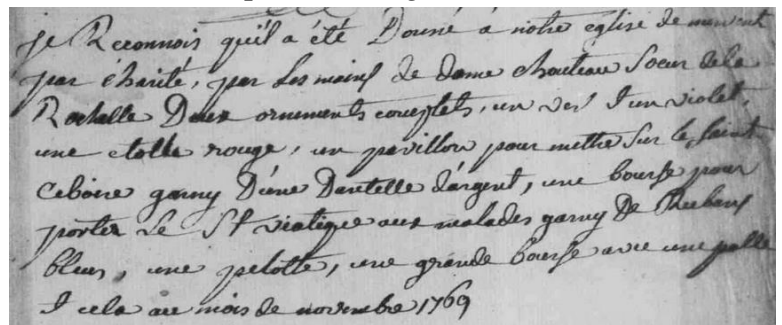 je Reconnois quëil a été Donné a notre eglise de mervent
par charité, par les mains de dame chouteau Soeur dela
Rochelle Deux ornements complets, un ver & un violet,
une etolle rouge, un pavillon pour mettre Sur le Saint
Ciboire garny D'une Dantelle d'argent, une bourse pour
porter Le St viatique aux malades garny De Rubans
bleus, une pelotte, une grande bourse avec une palle
& cela au mois de novembre 1769